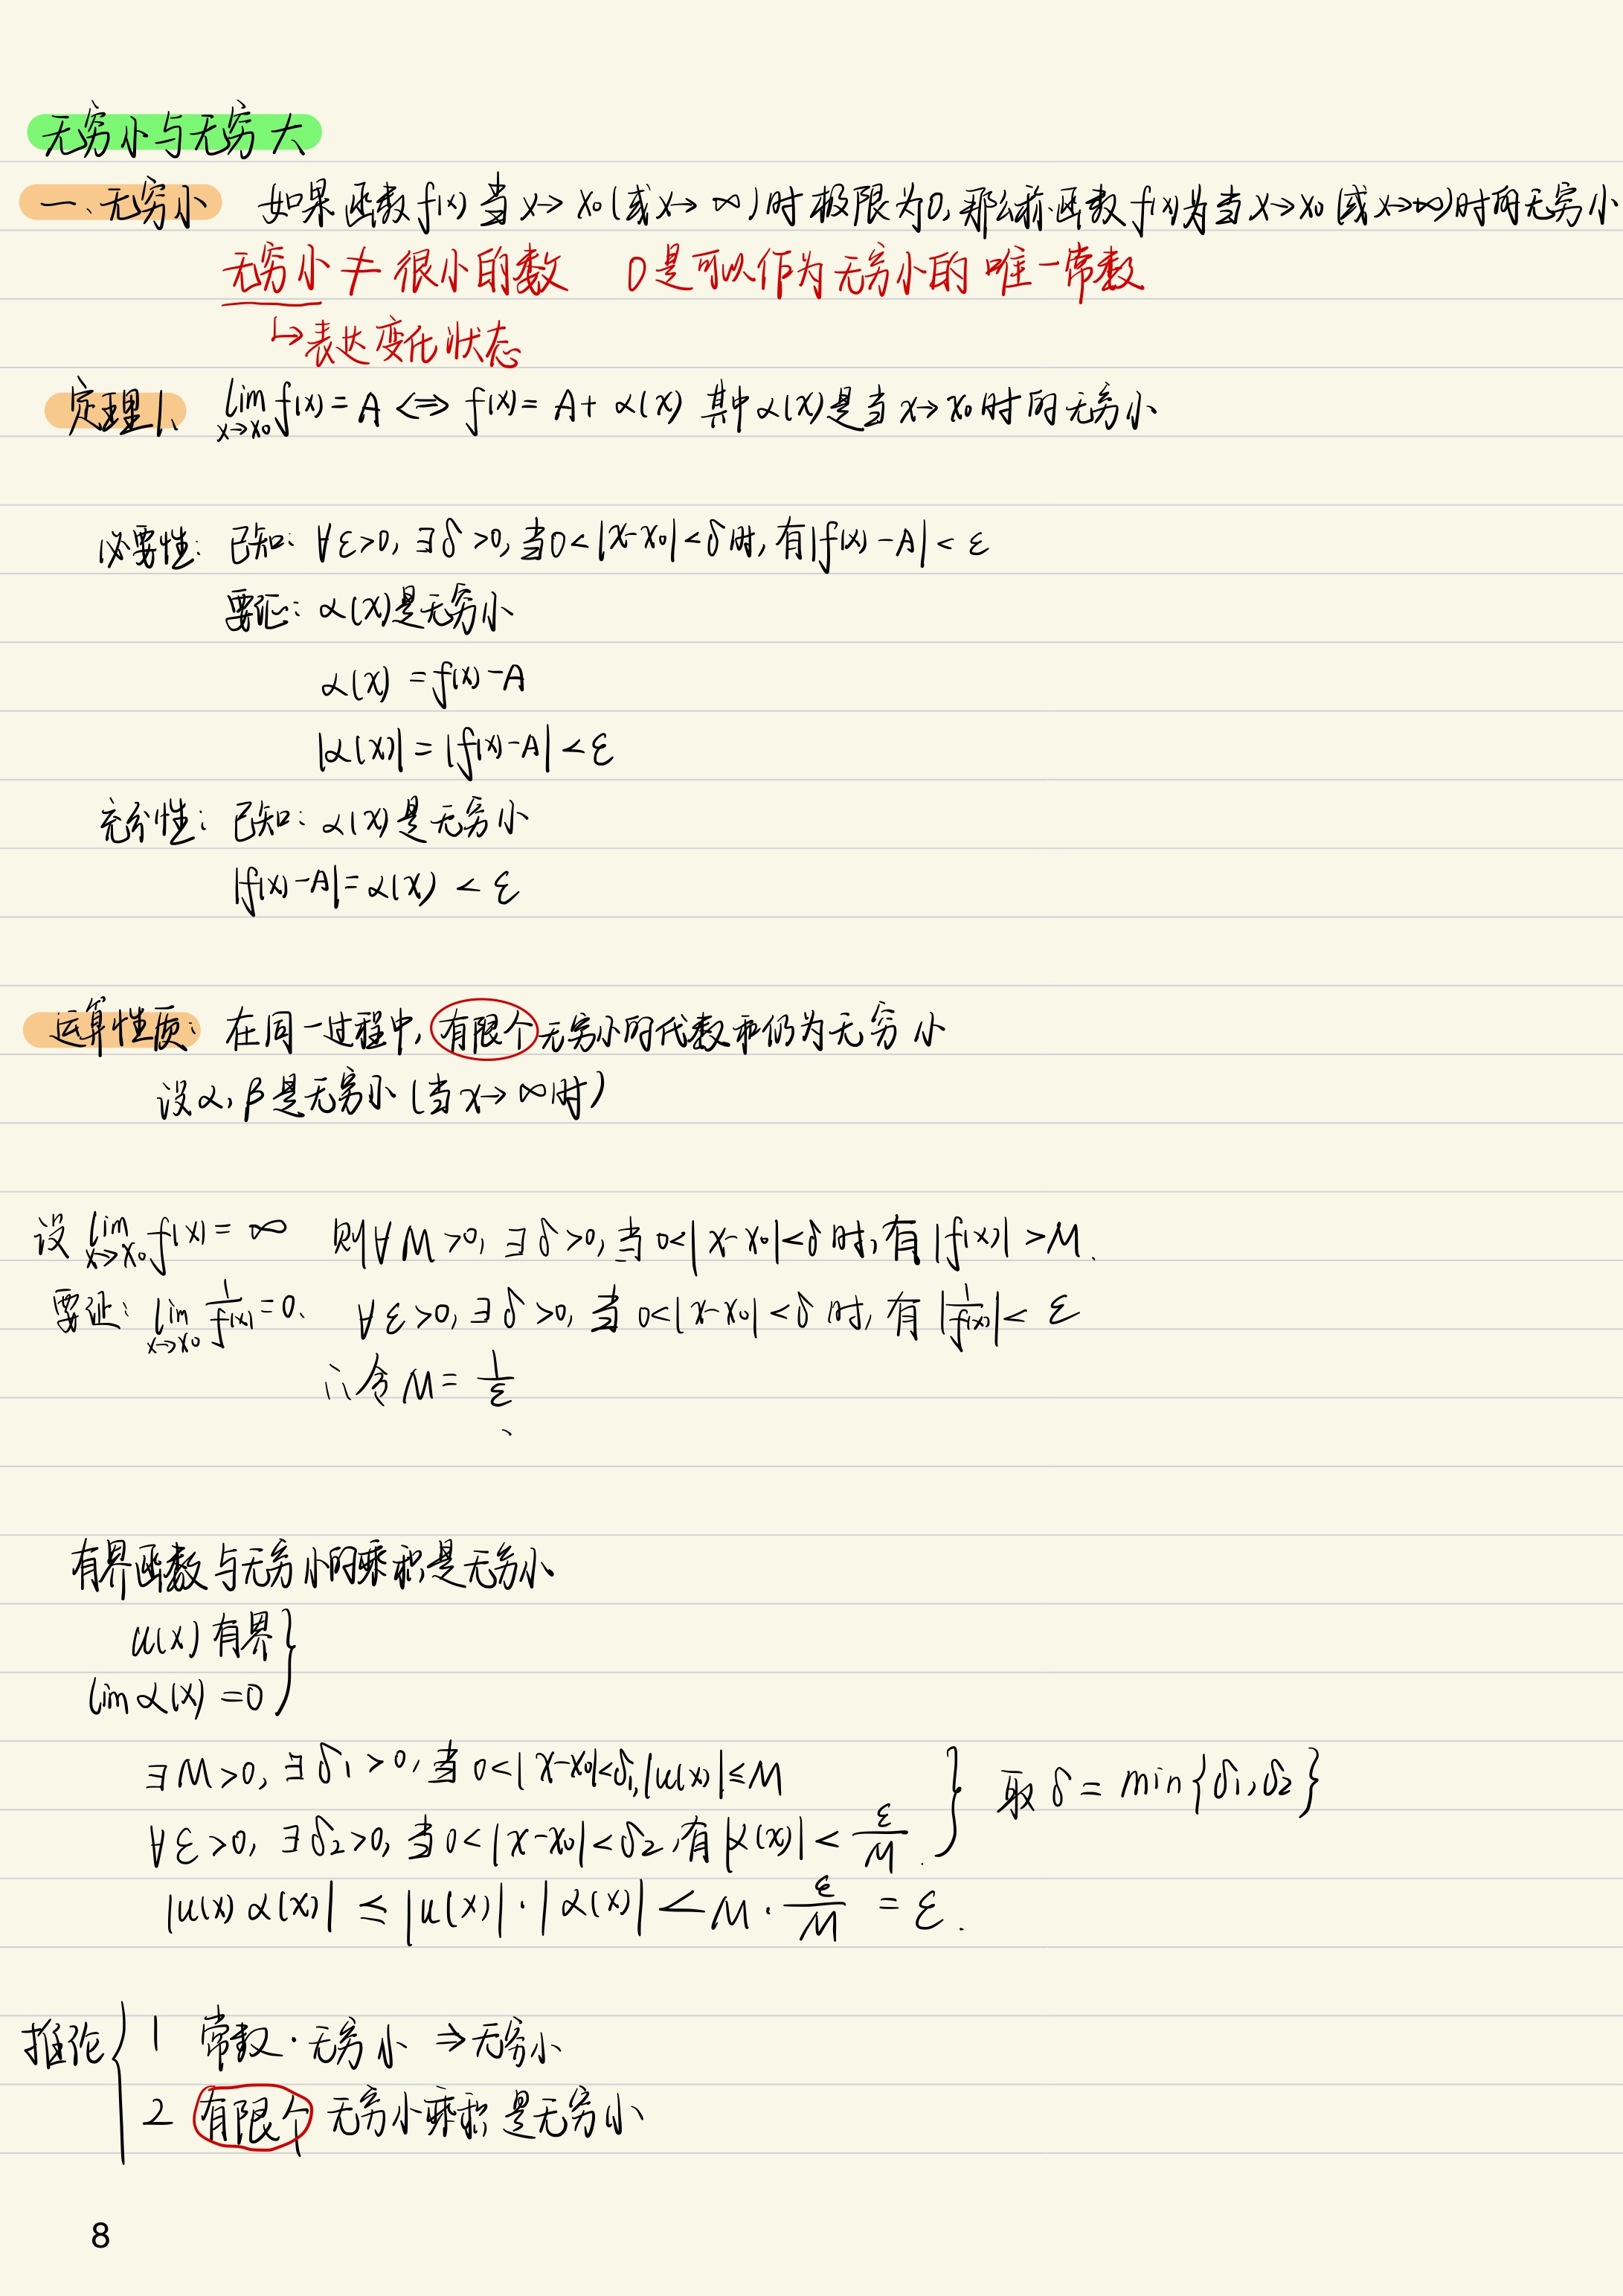 无穷小与无穷大
一、无穷小 如果函数f(x)当x→x₀(或x→∞)时极限为0,那么称函数f(x)为当x→x₀(或x→∞)时的无穷小
无穷小≠很小的数 0是可以作为无穷小的唯一常数
↳表达变化状态
定理1、 lim_{x→x₀} f(x)=A ⟺ f(x)=A+α(x) 其中α(x)是当x→x₀时的无穷小
必要性: 已知: ∀ε>0,∃δ>0,当0<|x-x₀|<δ时,有|f(x)-A|<ε
要证: α(x)是无穷小
α(x)=f(x)-A
|α(x)|=|f(x)-A|<ε
充分性: 已知: α(x)是无穷小
|f(x)-A|=α(x)<ε
运算性质: 在同一过程中,有限个无穷小的代数和仍为无穷小
设α,β是无穷小(当x→∞时)
设 lim_{x→x₀} f(x)=∞ 则∀M>0,∃δ>0,当0<|x-x₀|<δ时,有|f(x)|>M.
要证: lim_{x→x₀} 1/f(x)=0. ∀ε>0,∃δ>0,当0<|x-x₀|<δ时,有|1/f(x)|<ε
∴令M=1/ε
有界函数与无穷小的乘积是无穷小
u(x)有界}
lim α(x)=0
∃M>0,∃δ₁>0,当0<|x-x₀|<δ₁,|u(x)|≤M } 取δ=min{δ₁,δ₂}
∀ε>0,∃δ₂>0,当0<|x-x₀|<δ₂,有|α(x)|<ε/M.
|u(x)α(x)|≤|u(x)|·|α(x)|<M·ε/M=ε.
推论{ 1 常数·无穷小⇒无穷小
2 有限个无穷小乘积是无穷小
8